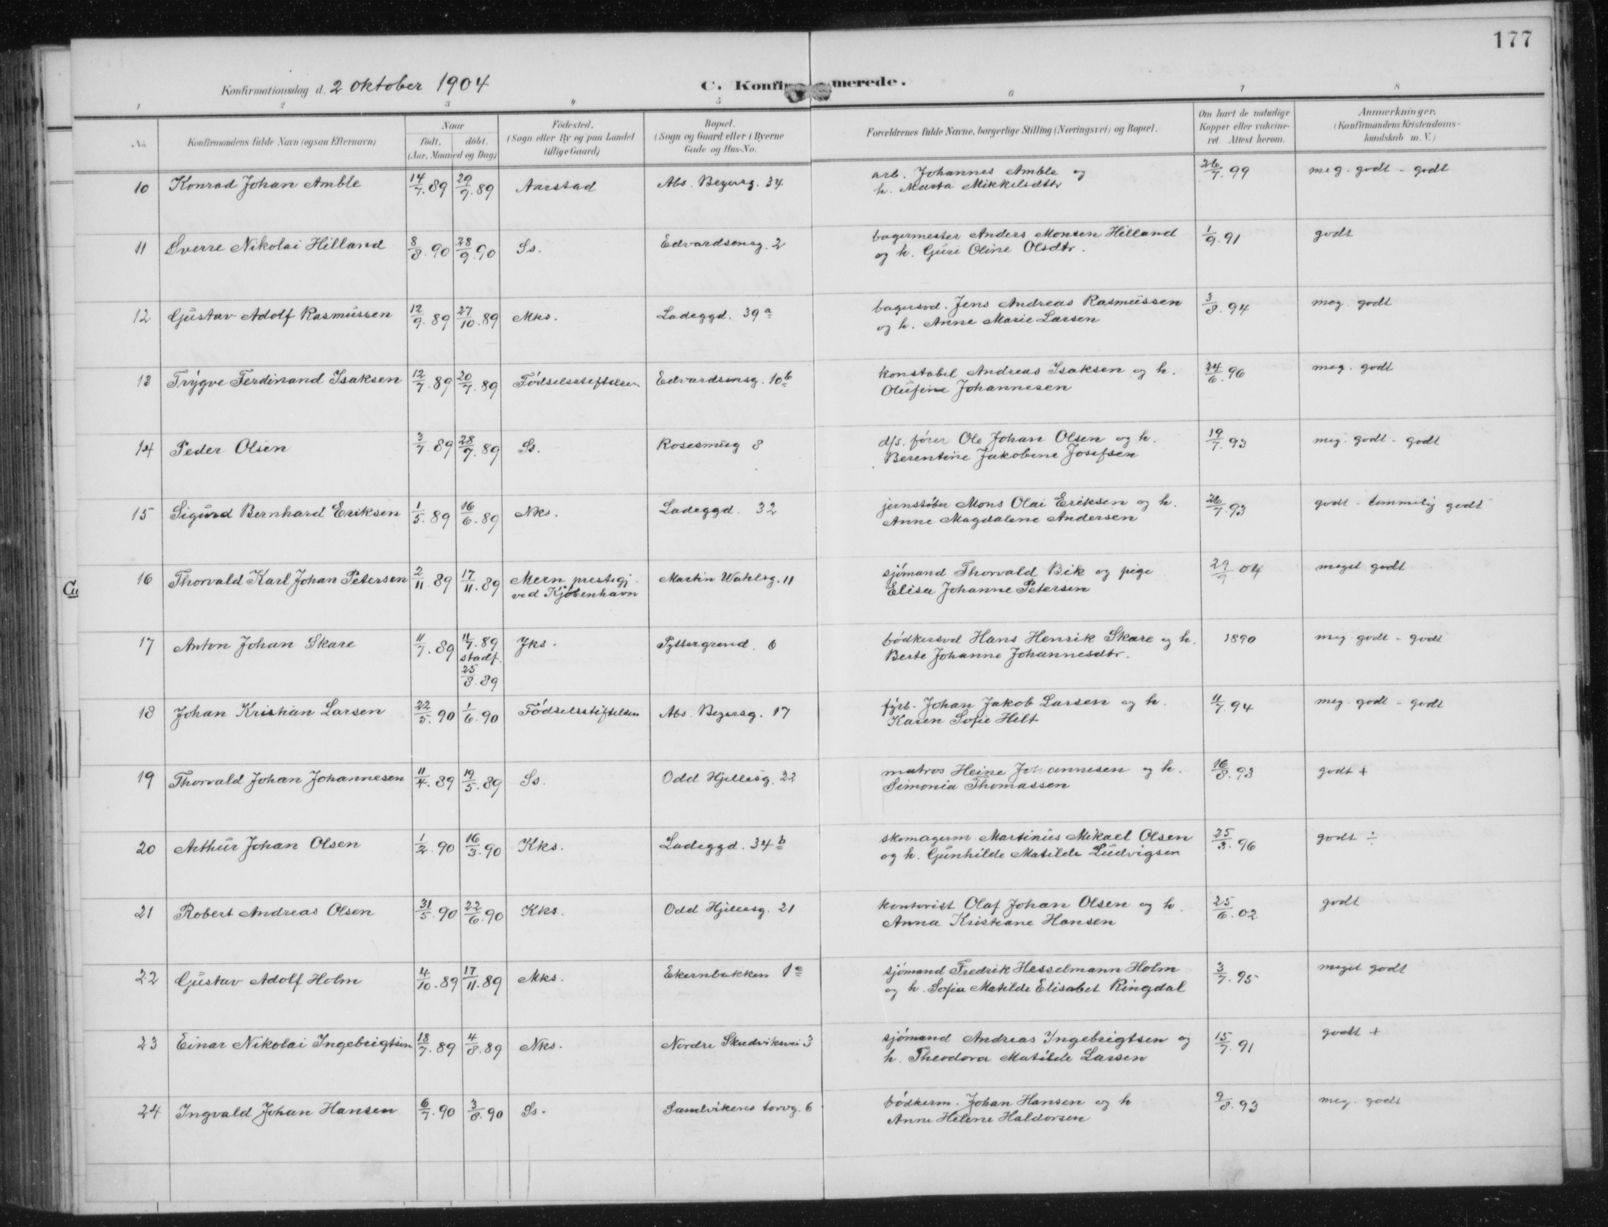 177
Konfirmationsdag d. 2 oktober 1904 C. Konfirmerede.
1 2 3 4 5 6 7 8
No. Konfirmandens fulde Navn (ogsaa Efternavn) Naar født, døbt. (Aar, Maaned og Dag) Fødested. (Sogn eller By og paa Landet tillige Gaard) Bopæl. (Sogn og Gaard eller i Byerne Gade og Hus-No. Forældrenes fulde Navne, borgerlige Stilling (Næringsvei) og Bopæl. Om havt de naturlige Kopper eller vaksineret. Attest herom. Anmerkninger. (Konfirmandens Kristendomskundskab m. V.)
10 Konrad Johan Amble 14/7.89 29/9.89 Aarstad Abs. Beyersg. 34 arb. Johannes Amble og 26/7.99 meg. godt - godt
h. Marta Mikkelsdtr
11 Sverre Nikolai Hilland 8/8.90 28/9.90 Ss. Edvardsensg. 2 bagermester Anders Monsen Hilland 1/9.91 godt
og h. Guri Oline Olsdtr.
12 Gustav Adolf Rasmussen 12/9.89 27/10.89 Mks. Ladeggd. 39a bagersvd. Jens Andreas Rasmussen 3/8.94 meg. godt
og h. Anne Marie Larsen
13 Trygve Ferdinand Isaksen 12/7.89 20/7.89 Fødselsstiftelsen Edvardsensg. 10b konstabel Andreas Isaksen og h. 24/6.96 meg. godt
Olufine Johannesen
14 Peder Olsen 3/7.89 28/7.89 Ss. Rosesmug 8 d/s. fører Ole Johan Olsen og h. 19/7.93 meg. godt - godt
Berentine Jakobine Josefsen
15 Sigurd Bernhard Eriksen 1/5.89 16/6.89 Nks. Ladeggd. 32 jernstøber Mons Olai Eriksen og h. 26/7.93 godt - temmelig godt
Anne Magdalene Andersen
16 Thorvald Karl Johan Petersen 2/11.89 17/11.89 Mern prestegj. Martin Wahlsg. 11 sjømand Thorvald Bek og pige 04 meget godt
ved Kjøbenhavn Elisa Johanne Petersen
17 Anton Johan Skare 11/7.89 11/7.89 Jks. Pyttergrend. 6 bødkersvd Hans Henrik Skare og h. 1890 meg. godt - godt
stadf. Berte Johanne Johannesdtr.
25/8.89
18 Johan Kristian Larsen 22/5.90 1/6.90 Fødselsstiftelsen Abs. Beyersg. 17 fyrb. Johan Jakob Larsen og h. 11/7.94 meg. godt - godt
Karen Sofie Helt
19 Thorvald Johan Johannesen 11/4.89 19/5.89 Ss. Odd Hjeltesg. 22 matros Heine Johannesen og h. 16/8.93 godt +
Simonia Thomassen
20 Arthur Johan Olsen 1/2.90 16/3.90 Kks. Ladeggd. 34b skomagerm. Martinus Mikael Olsen 25/3.96 godt ÷
og h. Gunhilde Matilde Ludvigsen
21 Robert Andreas Olsen 31/5.90 22/6.90 Kks. Odd Hjeltesg. 21 kontorist Olaf Johan Olsen og h. 25/6.02 godt
Anna Kristiane Hansen
22 Gustav Adolf Holm 4/10.89 17/11.89 Mks. Ekernbakken 1a sjømand Fredrik Hesselmann Holm 3/7.95 meget godt
og h. Sofia Matilde Elisabet Ringdal
23 Einar Nikolai Ingebrigtsen 18/7.89 4/8.89 Nks. Nordre Skudviksvei 3 sjømand Andreas Ingebrigtsen og 15/7.91 godt +
h. Theodora Matilde Larsen
24 Ingvald Johan Hansen 6/7.90 3/8.90 Ss. Sandvikens torvg. 6 bødkerm. Johan Hansen og h 9/8.93 meg. godt
Anne Helene Haldorsen